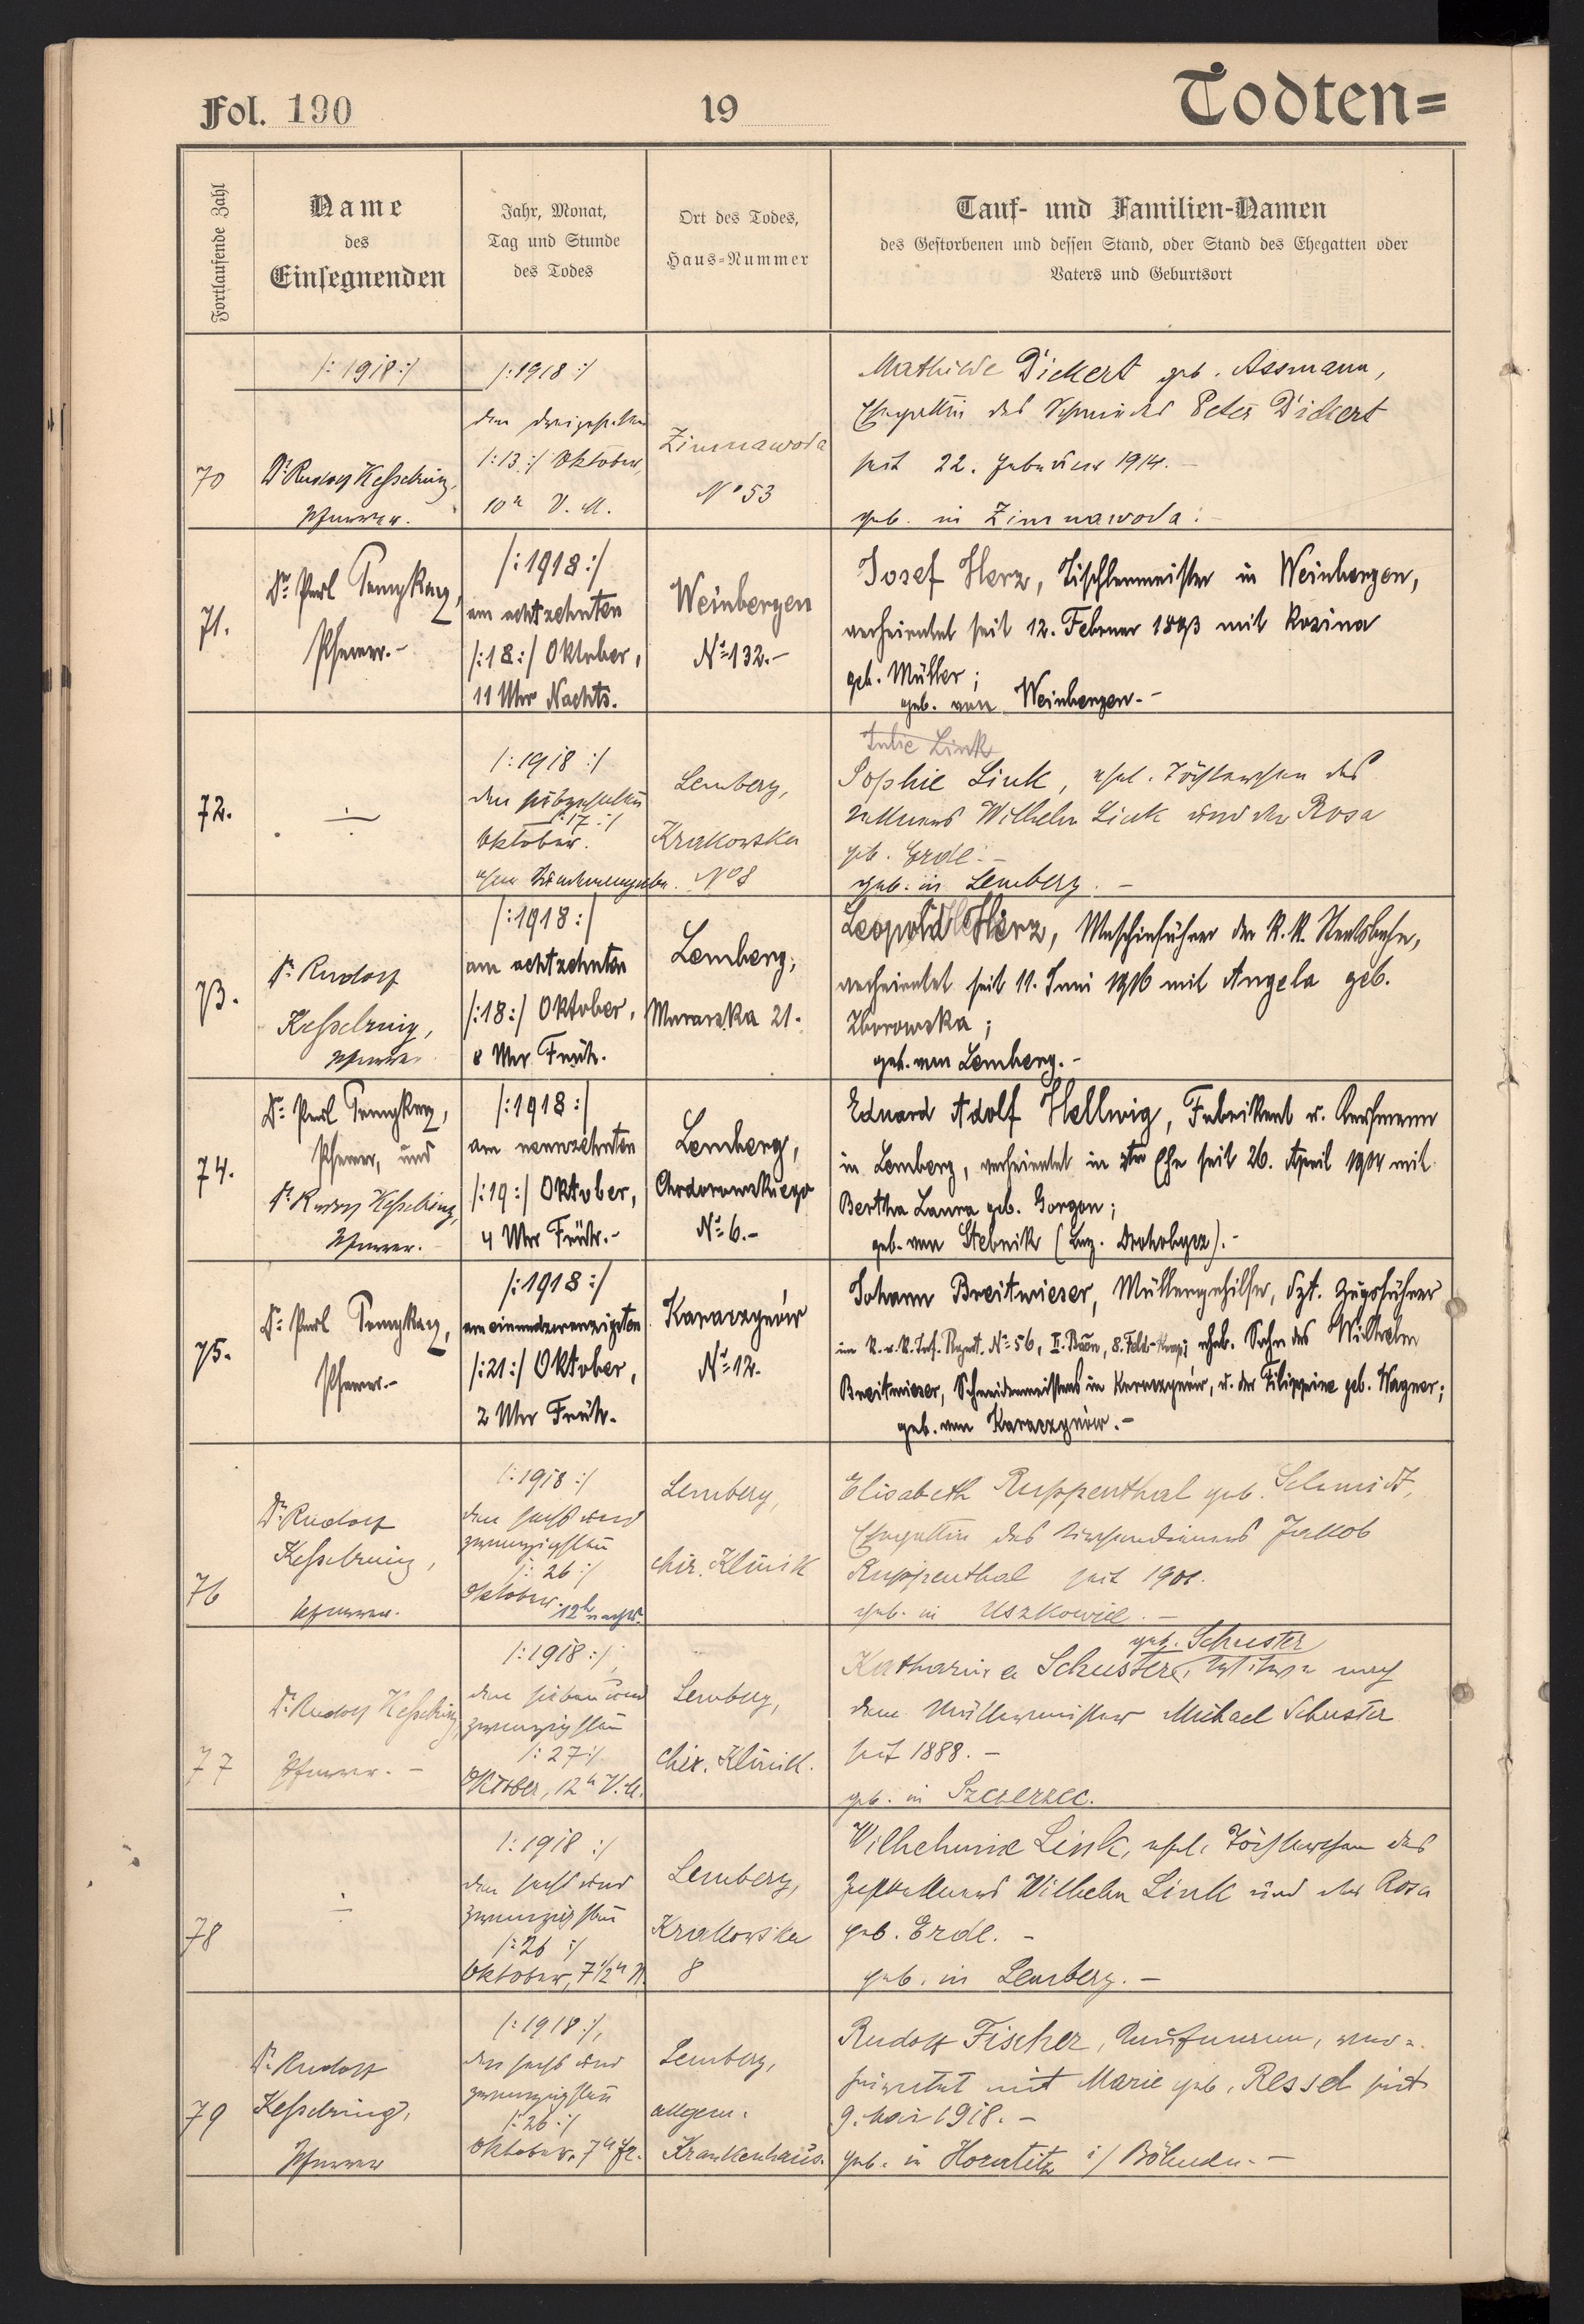 Fol. 190
19
Todten=
Fortlaufende Zahl
Name
des
Einsegnenden
Jahr, Monat,
Tag und Stunde
des Todes
Ort des Todes,
Haus-Nummer
Tauf- und Familien-Namen
des Gestorbenen und dessen Stand, oder Stand des Ehegatten oder
Vaters und Geburtsort
/:1918:/
70
Dr. Rudolf Kesselring,
Pfarrer.
/:1918:/
den dreizehnten
/:13:/ Oktober,
10h V. M.
Zimnawoda
No 53
Mathilde Dickert geb. Assmann,
Ehegattin des Schmiedes Peter Dickert
seit 22. Februar 1914.-
geb. in Zimnawoda.-
71.
Dr. Paul
Pfarrer.-
/:1918:/
am achtzehnten
/:18:/ Oktober,
11 Uhr Nachts.
Weinbergen
No 132.-
Josef Herz, Tischlermeister in Weinbergen,
verheiratet seit 12. Februar 1893 mit Rozina
geb. Müller;
geb. von Weinbergen.-
72.
÷
/:1918:/
den siebzehnten
/:17:/
Oktober.
Lemberg,
Krakowska
No 8
Julie Link
Sophie Link, ehel. Töchterchen des
Wilhelm Link und der Rosa
geb. Erdl.-
geb. in Lemberg.-
73.
Dr. Rudolf
Kesselring,
Pfarrer
/:1918:/
am achtzehnten
/:18:/ Oktober,
8 Uhr Früh.
Lemberg,
Murarska 21.
Leopold Herz, Maschinführer der K. K. Staatsbahn,
verheiratet seit 11. Juni 1916 mit Angela geb.
Zborowska;
geb. von Lemberg.-
74.
Dr. Paul
Pfarrer, und
Dr. Rudolf Kesselring,
Pfarrer.
/:1918:/
am neunzehnten
/:19:/ Oktober,
4 Uhr Früh.-
Lemberg,
Chodorowskiego
No 6.-
Eduard Adolf Hellwig, Fabrikant u. Kaufmann
in Lemberg, verheiratet in 2ter Ehe seit 26. April 1904 mit
Bertha Laura geb. Gorgon;
geb. von Stebnik (Bez. Drohobycz).-
75.
Dr. Paul
Pfarrer.-
/:1918:/
am einundzwanzigsten
/:21:/ Oktober,
2 Uhr Früh.
Karaczynów
No 12.
Johann Breitwieser, Müllergehilfe, dzt. Zugsführer
im K. u. K. Inf. Regmt. No 56, II. Baon, 8. Feld-Komp; ehel. Sohn des Wilhelm
Breitwieser, Schneidermeisters in Karaczynów, u. der Filippine geb. Wagner;
geb. von Karaczynów.-
76
Dr. Rudolf
Kesselring,
Pfarrer.
/:1918:/
den sechsund
zwanzigsten
/:26:/
Oktober. 12h nachts.
Lemberg,
chir. Klinik
Elisabeth Ruppenthal geb. Schmidt,
Ehegattin des Jakob
Ruppenthal seit 1901.
geb. in Uszkowice.-
77
Dr. Rudolf Kesselring,
Pfarrer.-
/:1918:/,
den siebenund
zwanzigsten
/:27:/
Oktober, 12h V.M.
Lemberg,
chir. Klinik.
geb. Schuster
Katharina Schuster, Witwe nach
dem Müllermeister Michael Schuster
seit 1888.-
geb. in Szczerzec.
78
÷
/:1918:/
den sechsund
zwanzigsten
/:26:/
Oktober, 7 1/2h N.
Lemberg,
Krakowska
8
Wilhelmine Link, ehel. Töchterchen des
Wilhelm Link und der Rosa
geb. Erdl.-
geb. in Lemberg.-
79
Dr. Rudolf
Kesselring,
Pfarrer
/:1918:/,
den sechsund
zwanzigsten
/:26:/
Oktober, 7h Fr.
Lemberg,
allgem.
Krankenhaus.
Rudolf Fischer, Kaufmann, ver=
heiratet mit Marie geb. Ressel seit
9. Mai 1918.-
geb. in Horatitz i/ Böhmen.-